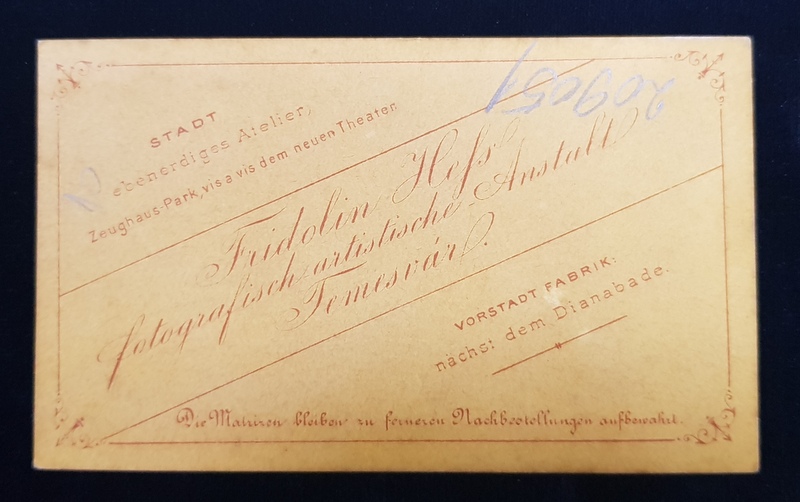 STADT
ebenerdiges Atelier,
Zeughaus-Park, vis a vis dem neuen Theater
Fridolin Hess
fotografisch-artistische Anstalt
Temesvár.
VORSTADT FABRIK:
nächst dem Dianabade.
Die Matrizen bleiben zu ferneren Nachbestellungen aufbewahrt.
209051